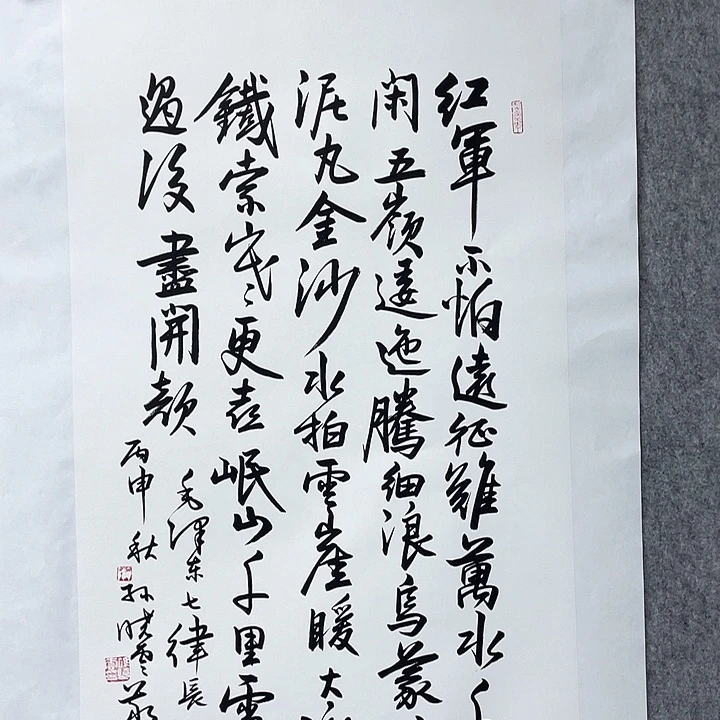 紅軍不怕遠征難萬水千
閑五嶺逶迤騰細浪烏蒙
泥丸金沙水拍雲崖暖大
鐵索寒更喜岷山千里雪
過後盡開顏
毛澤東七律長
丙申秋孫曉雲